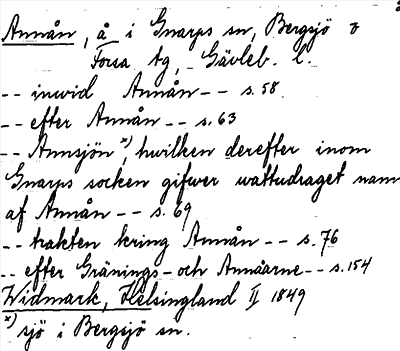 Annån, å i Gnarps sn, Bergsjö o
Forsa tg, Gävleb. l.
-- inwid Annån -- s. 58.
-- efter Annån -- s. 63
-- Annsjön x), hwilken derefter inom
Gnarps socken gifwer wattudraget namn
af Annån -- s. 69
-- trakten kring Annån -- s. 76
-- efter Gränings- och Annåarne -- s. 154
Widmark, Helsingland II 1849
x) sjö i Bergsjö sn.